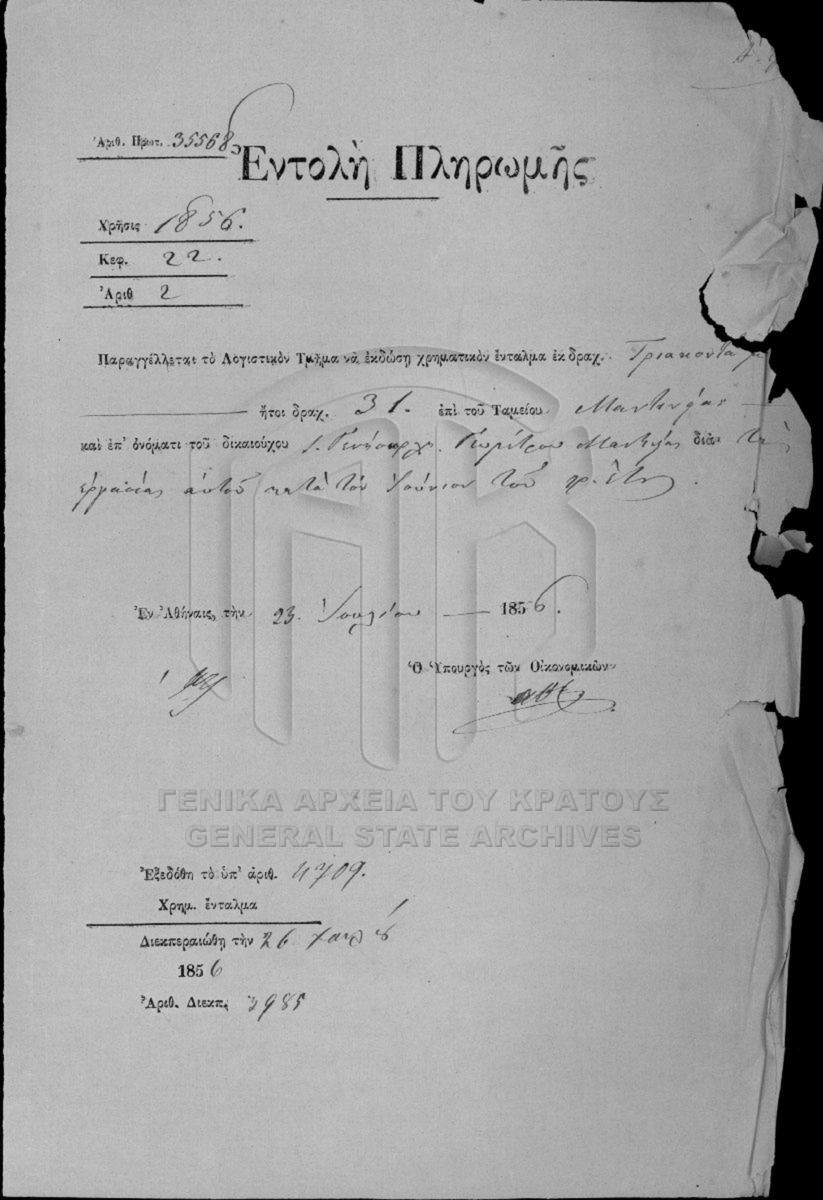 Ἀριθ. Πρωτ. 35568
Ἐντολὴ Πληρωμῆς
Χρῆσις 1856.
Κεφ. 22.
Ἀριθ 2
Παραγγέλλεται τὸ Λογιστικὸν Τμῆμα νὰ ἐκδώσῃ χρηματικὸν ἔνταλμα ἐκ δραχ. Τριάκοντα
ἤτοι δραχ. 31. ἐπὶ τοῦ Ταμείου Μαντινείας
καὶ ἐπ' ὀνόματι τοῦ δικαιούχου Γεωμέτρου Μαντινείας διὰ
ἐργασίας αὐτοῦ κατὰ τὸν Ἰούνιον τοῦ ἔτους.
Ἐν Ἀθήναις, τὴν 23 Ἰουλίου 1856.
Ὁ Ὑπουργὸς τῶν Οἰκονομικῶν
ΓΕΝΙΚΑ ΑΡΧΕΙΑ ΤΟΥ ΚΡΑΤΟΥΣ
GENERAL STATE ARCHIVES
Ἐξεδόθη τὸ ὑπ' ἀριθ. 4709.
Χρημ. ἔνταλμα
Διεκπεραιώθη τὴν 26
1856
Ἀριθ. Διεκπ. 3985